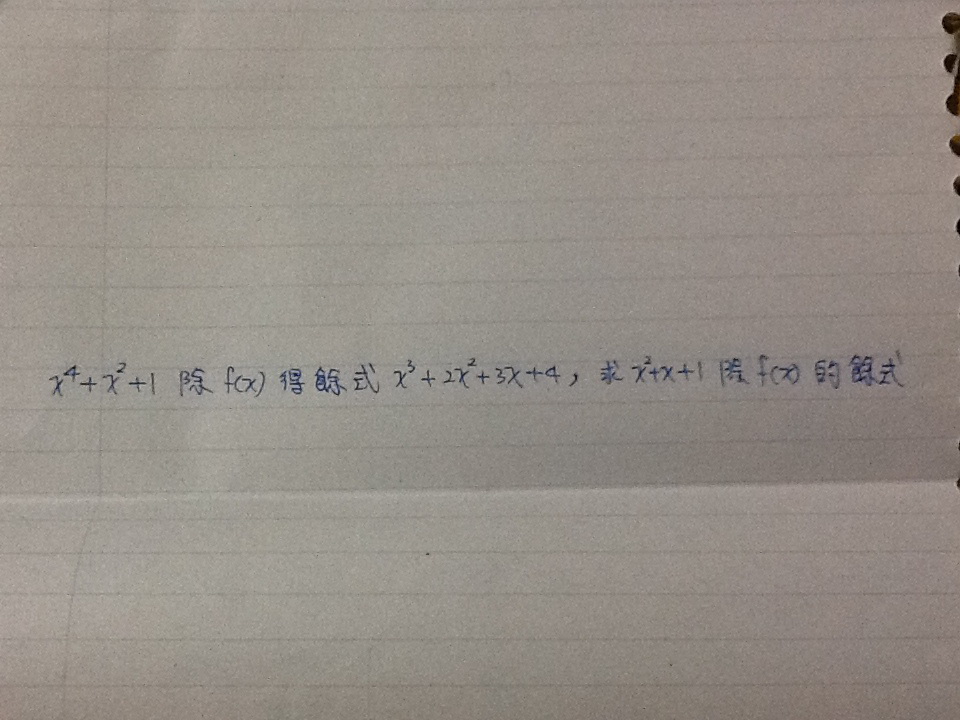 x⁴+x²+1 除 f(x) 得餘式 x³+2x²+3x+4，求 x²+x+1 除 f(x) 的餘式